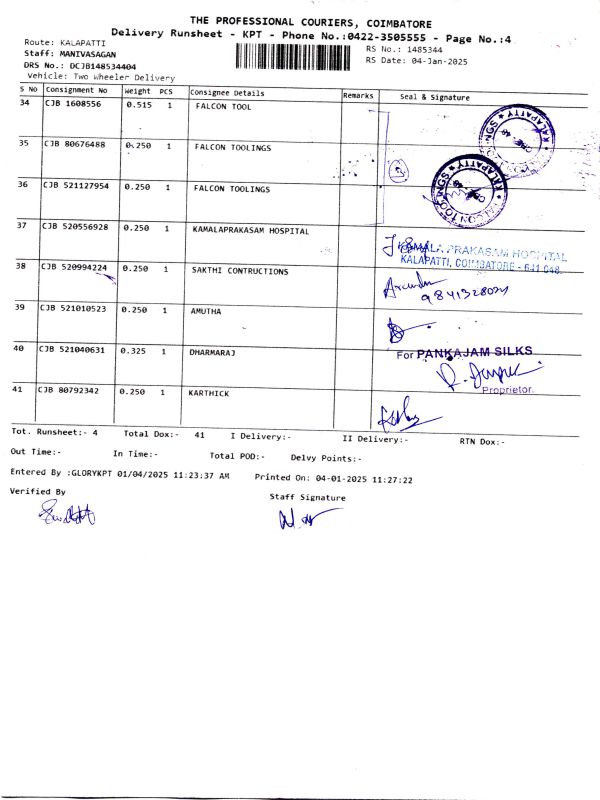 THE PROFESSIONAL COURIERS, COIMBATORE
Delivery Runsheet - KPT - Phone No.:0422-3505555 - Page No.:4
Route: KALAPATTI
RS No.: 1485344
Staff: MANIVASAGAN
RS Date: 04-Jan-2025
DRS No.: DCJB148534404
Vehicle: Two Wheeler Delivery
S No Consignment No Weight PCS Consignee Details Remarks Seal & Signature
34 CJB 1608556 0.515 1 FALCON TOOL
35 CJB 80676488 0.250 1 FALCON TOOLINGS
KALAPATTY
36 CJB 521127954 0.250 1 FALCON TOOLINGS
KALAPATTY
37 CJB 520556928 0.250 1 KAMALAPRAKASAM HOSPITAL
KAMALA PRAKASAM HOSPITAL
KALAPATTI, COIMBATORE - 641 048.
38 CJB 520994224 0.250 1 SAKTHI CONTRUCTIONS
39 CJB 521010523 0.250 1 AMUTHA
40 CJB 521040631 0.325 1 DHARMARAJ
For PANKAJAM SILKS
Proprietor.
41 CJB 80792342 0.250 1 KARTHICK
Tot. Runsheet:- 4 Total Dox:- 41 I Delivery:- II Delivery:- RTN Dox:-
Out Time:- In Time:- Total POD:- Delvy Points:-
Entered By :GLORYKPT 01/04/2025 11:23:37 AM Printed On: 04-01-2025 11:27:22
Verified By
Staff Signature